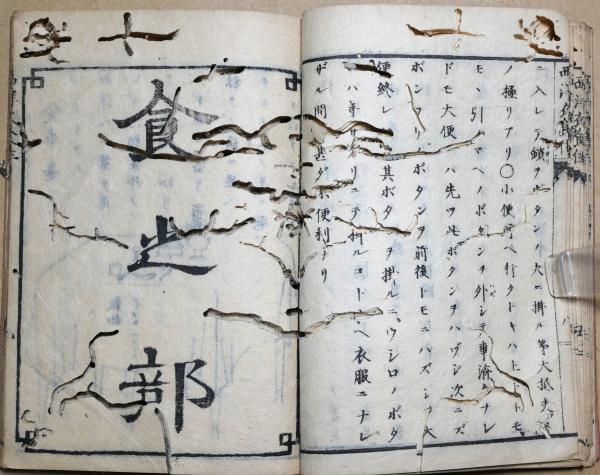 西洋衣食住
ニ入レテ鎖ヲボタンノ穴ニ掛ル等大抵夫々
ノ極リアリ〇小便所ヘ行クトキハ上下トモ
モヽ引ノマヘノボタンヲ外シテ事済ムナレ
ドモ大便ハ先ツ此ボタンヲハヅシ次ニズ
ボンツリノボタンヲ前後トモニハズシ大
便終レ其ボタヲ掛ルニウシロノボタ
ハ手サグリニテ掛ルコトユヘ衣服ニナレ
ザル間ハ甚タ不便利ナリ
食之部